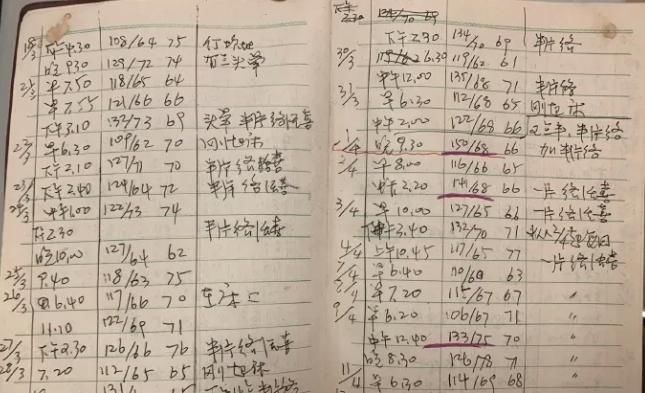 19/3 下午4.30 108/64 75
晚9.30 129/72 74
21/3 早7.50 118/65 64
早7.55 121/66 66
下午3.10 132/73 69 头晕 半片络活喜
23/3 早6.30 109/62 70 刚起床
下午2.10 127/71 70 半片络活喜
下午2.40 124/64 72 半片络活喜
中午1.00 122/73 74
下午2.30 半片络活喜
晚10.00 127/64 62
25/3 9.40 118/63 75
26/3 早6.40 117/66 70
11.10 122/69 71
27/3 下午2.30 126/66 76 半片络活喜
28/3 7.20 112/65 65 刚起床
下午2.30 134/70 69
下午2.30 134/70 69 半片络
30/3 6.30 119/62 61
中午12.00 135/68 71 半片络
31/3 早6.30 112/68 65 刚起床
中午2.00 122/68 66 半片络
1/4 晚9.30 150/68 66 加半片络
2/4 早8.00 116/66 65
中午2.20 141/68 66 一片络活喜
3/4 早10.00 127/65 66 一片络活喜
下午3.40 132/70 71 从2/4起每日
4/4 上午10.45 117/65 77 一片络活喜
7/4 早6.40 110/60 63
早7.20 115/67 67 〃
9/4 早6.20 106/67 71 〃
中午12.40 133/75 70 〃
晚8.30 126/78 71 〃
11/4 早6.30 114/69 68 〃